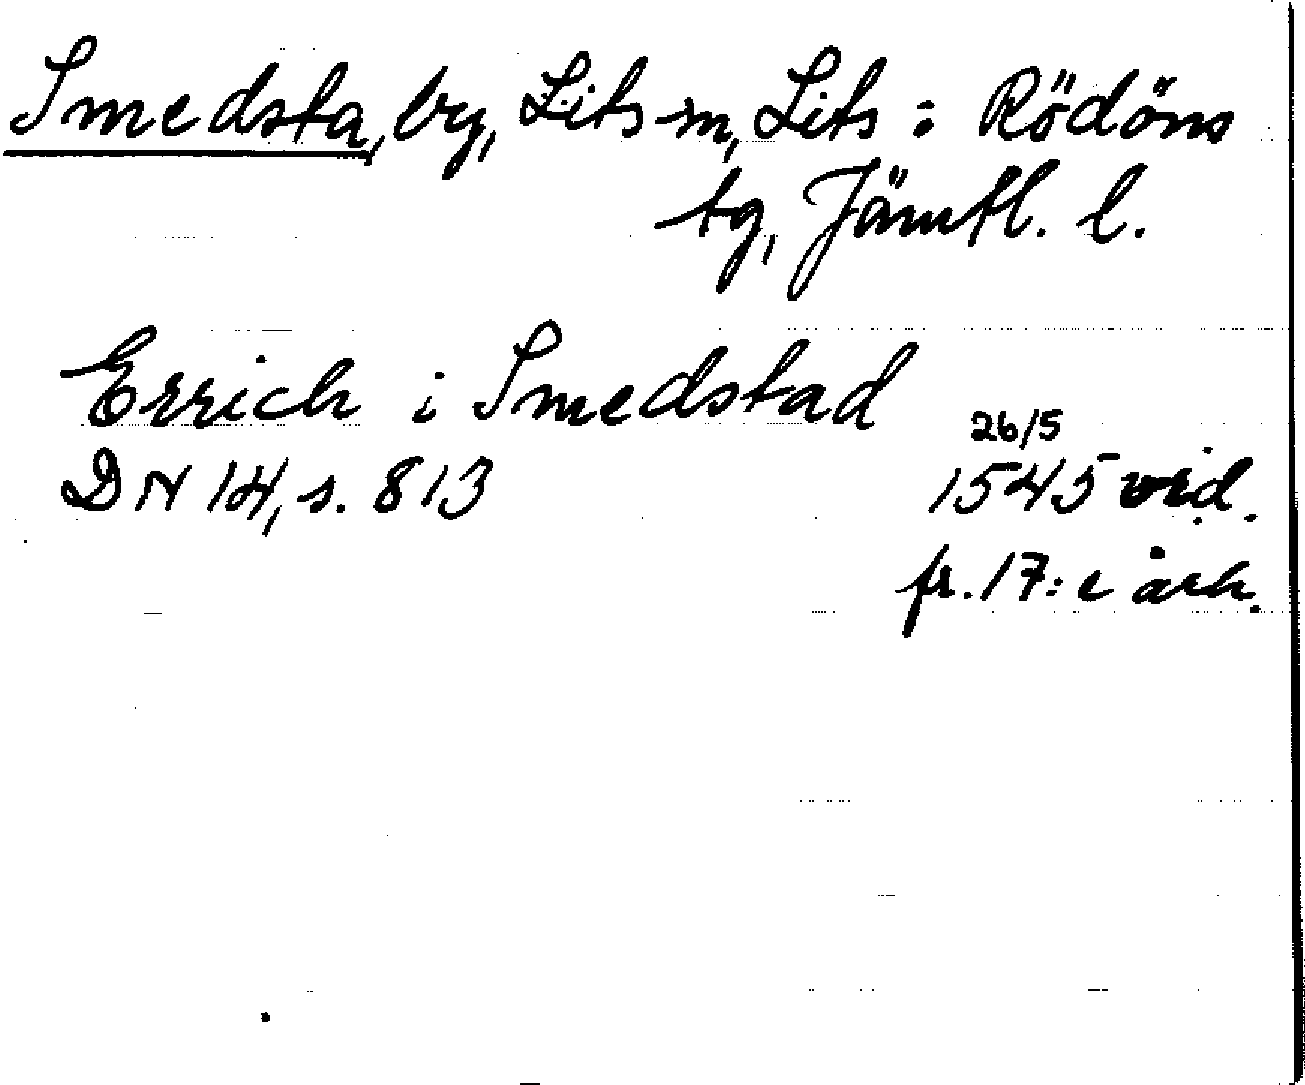 Smedsta, by, Lits sn, Lits o Rödöns
tg, Jämtl. l.
Errich i Smedstad
DN 14, s. 813
26/5
1545 vid.
fr. 17:e årh.